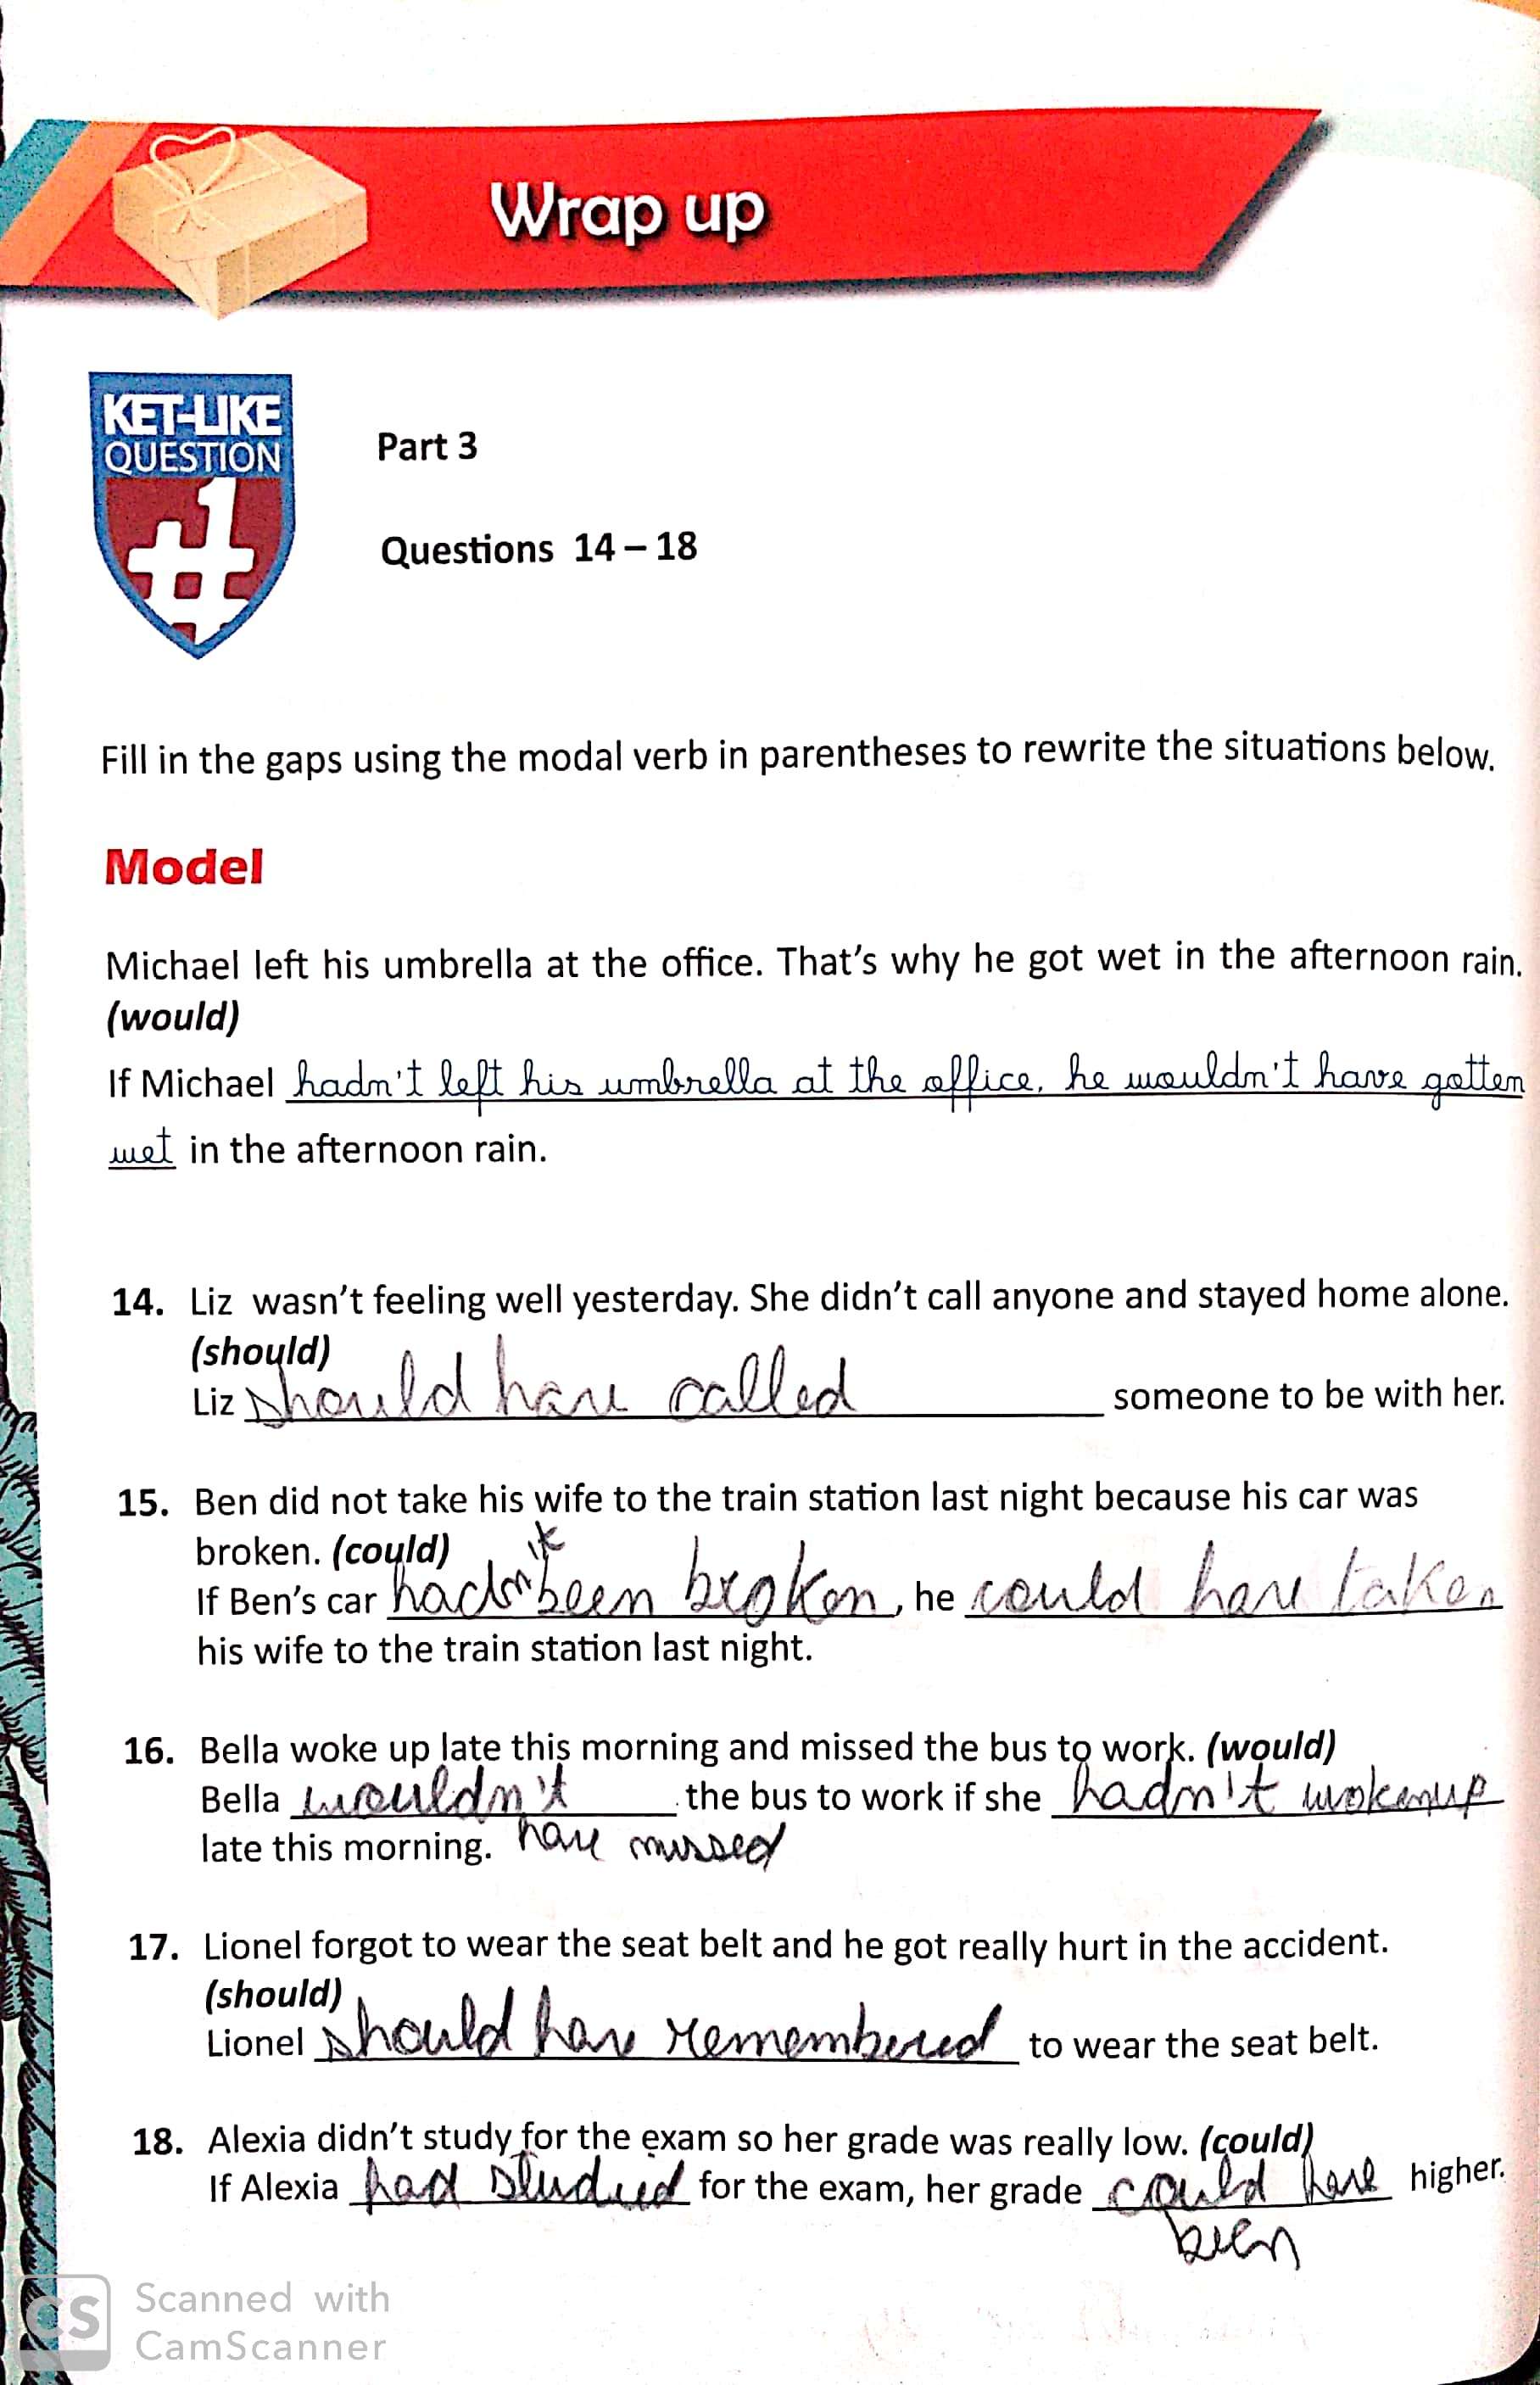 Wrap up
KET-LIKE
QUESTION
#1
Part 3
Questions 14 – 18
Fill in the gaps using the modal verb in parentheses to rewrite the situations below.
Model
Michael left his umbrella at the office. That's why he got wet in the afternoon rain.
(would)
If Michael hadn't left his umbrella at the office, he wouldn't have gotten
wet in the afternoon rain.
14. Liz wasn't feeling well yesterday. She didn't call anyone and stayed home alone.
(should)
Liz should have called someone to be with her.
15. Ben did not take his wife to the train station last night because his car was
broken. (could)
If Ben's car hadn't been broken, he could have taken
his wife to the train station last night.
16. Bella woke up late this morning and missed the bus to work. (would)
Bella wouldn't the bus to work if she hadn't woken up
late this morning. have missed
17. Lionel forgot to wear the seat belt and he got really hurt in the accident.
(should)
Lionel should have remembered to wear the seat belt.
18. Alexia didn't study for the exam so her grade was really low. (could)
If Alexia had studied for the exam, her grade could have higher.
been
CS Scanned with
CamScanner